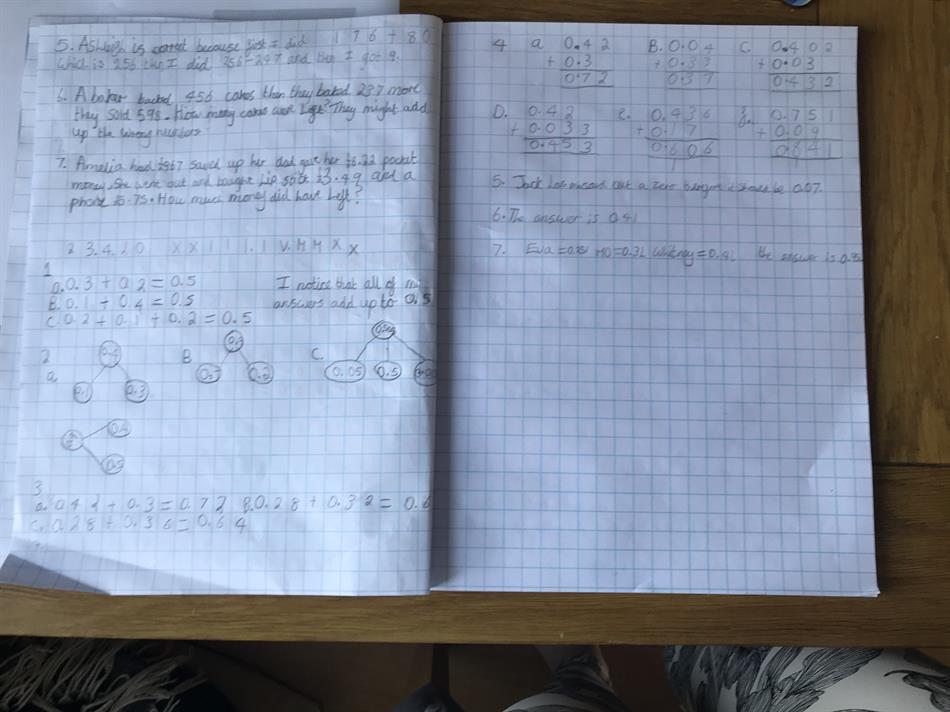 5. Ashleigh is correct because first I did 176 + 80
which is 256 then I did 256-247 and then I got 9.
6. A baker backed 456 cakes then they baked 237 more
they sold 598. How many cakes were left? They might add
up the wrong numbers
7. Amelia had £967 saved up her dad gave her £6.22 pocket
money. She went out and bought Lip stick £3.49 and a
phone £5.75. How much money did have left?
2 3.4.20 XX 111 1.1 V.MMXX
1
a. 0.3 + 0.2 = 0.5
B. 0.1 + 0.4 = 0.5
C. 0.2 + 0.1 + 0.2 = 0.5
I notice that all of my
answers add up to 0.5
2
a. 0.1 0.3
B 0.2
C. 0.05 0.5
0.4
0.5
3
a. 0.42 + 0.3 = 0.72 B. 0.28 + 0.32 = 0.6
C. 0.28 + 0.36 = 0.64
4 a. 0.42 B. 0.04 C. 0.402
+ 0.3 + 0.33 + 0.03
0.72 0.37 0.432
D. 0.42 e. 0.436 0.751
+ 0.033 + 0.17 + 0.09
0.453 0.606 0.841
5. Jack has missed out a zero it should be 0.07.
6. The answer is 0.41
7. Eva = Mo = 0.31 Whitney = the answer is